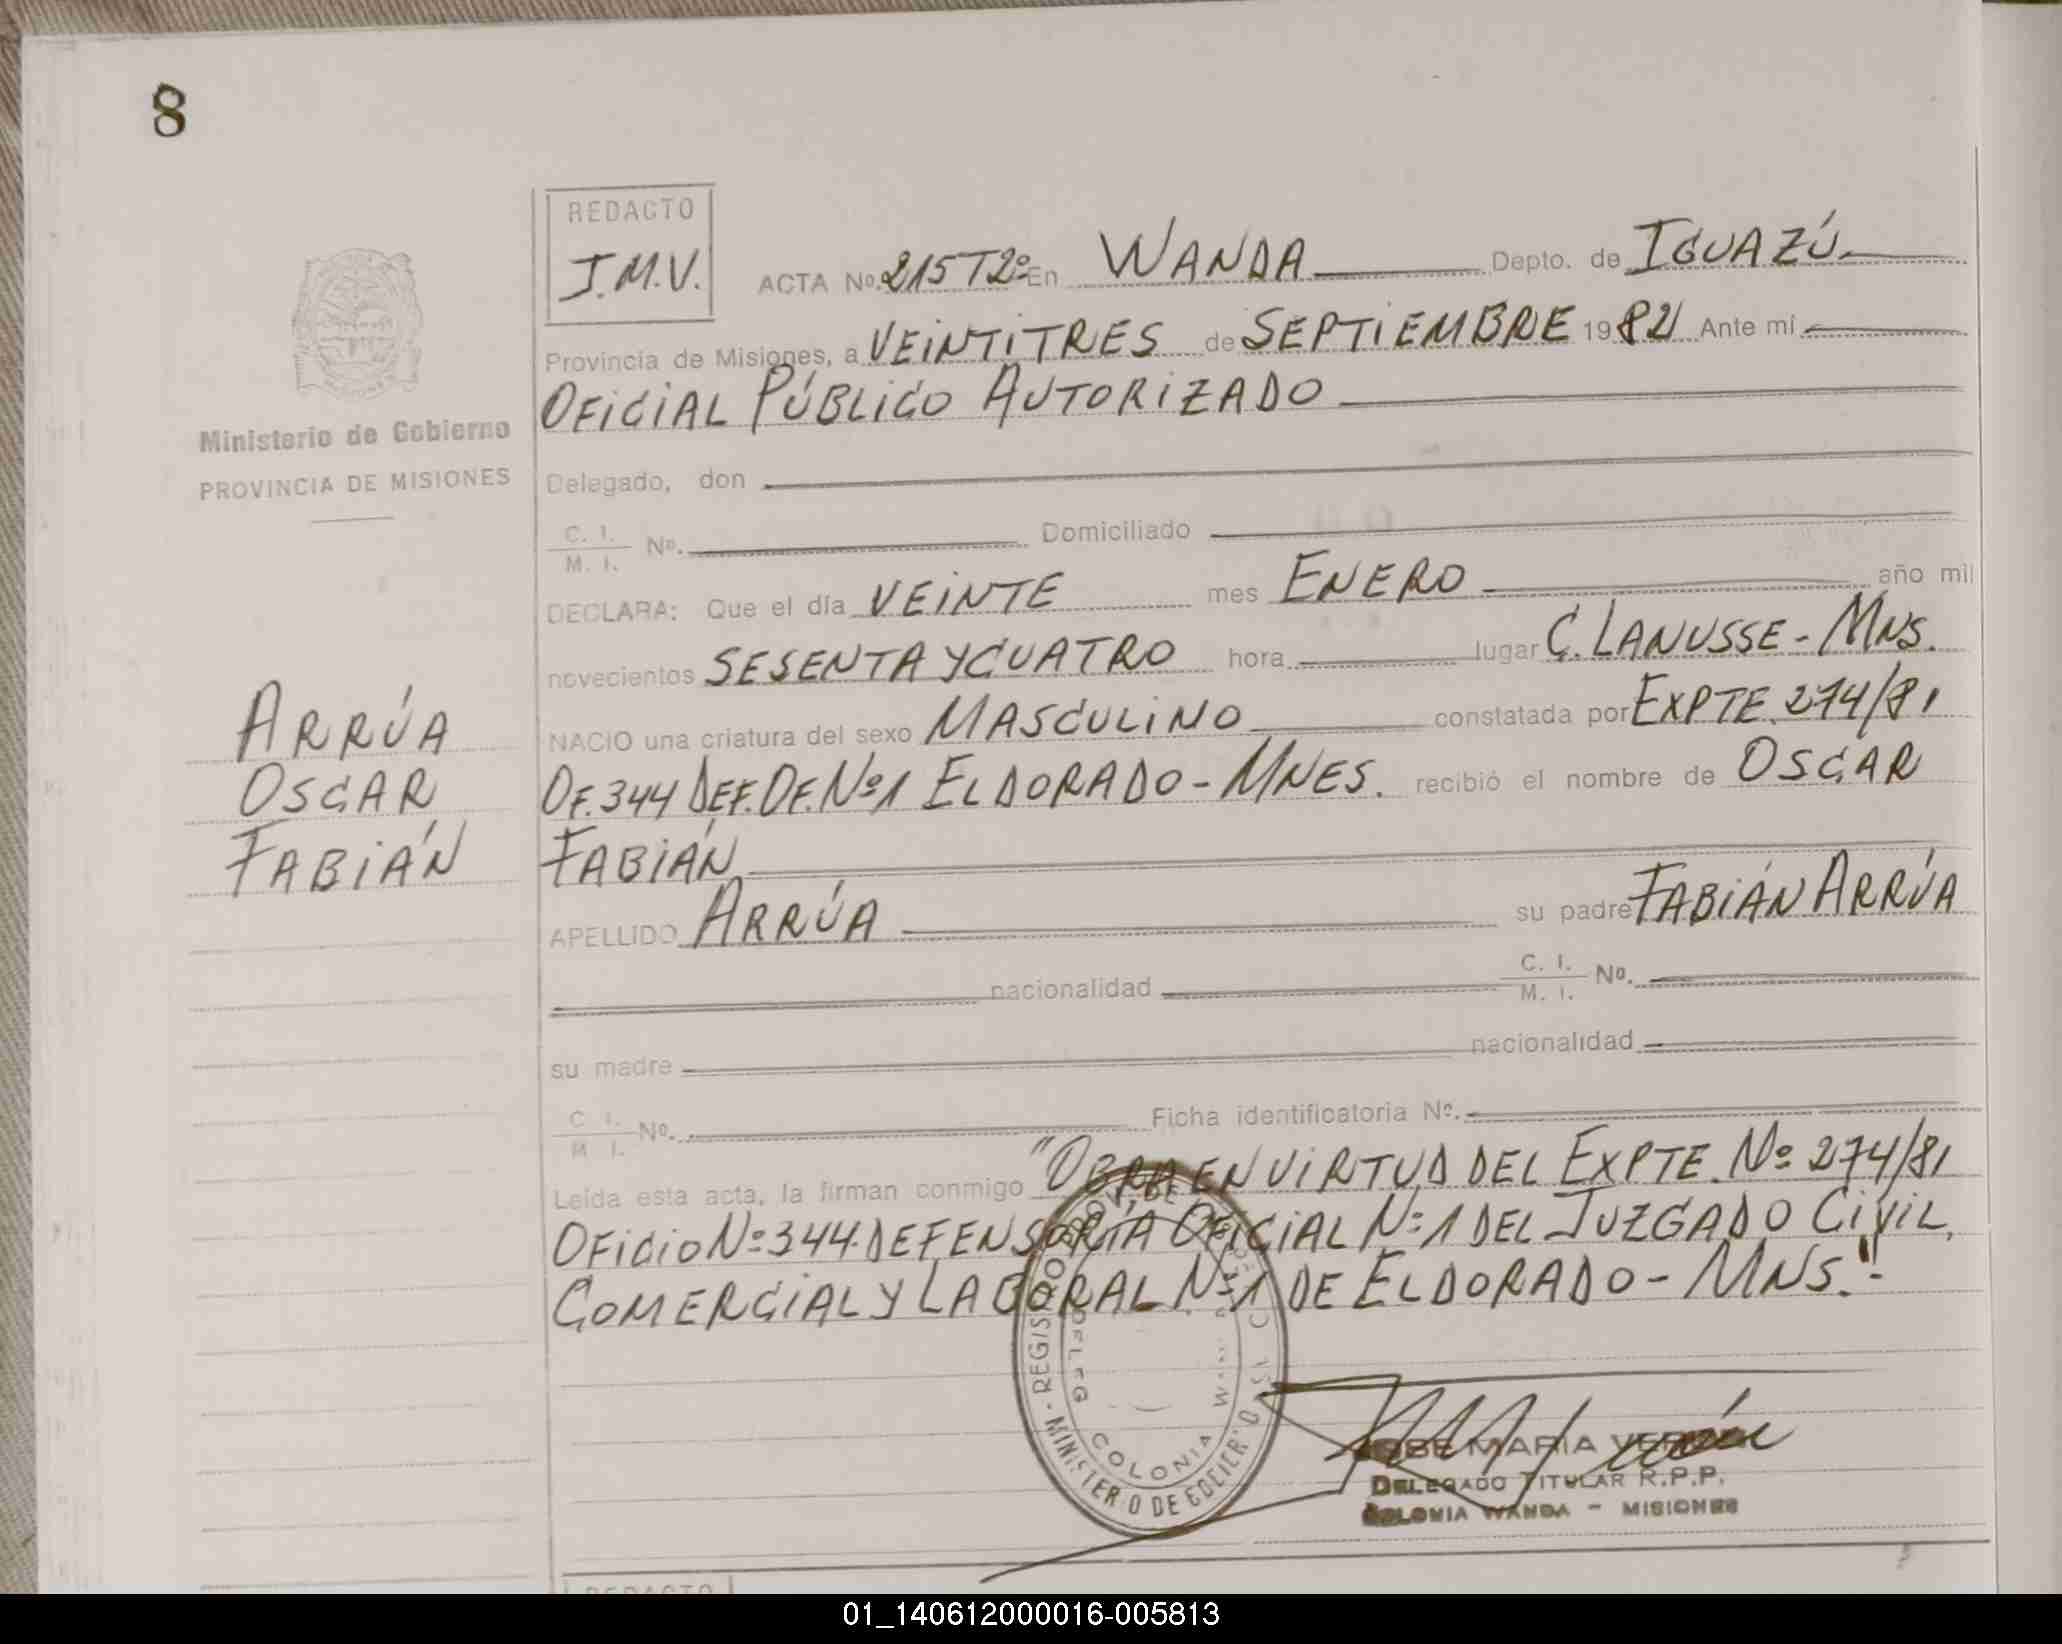 8
REDACTO
J.M.V.
ACTA Nº. 215 T2º En WANDA Depto. de IGUAZÚ
Provincia de Misiones, a VEINTITRES de SEPTIEMBRE 1982 Ante mí
OFICIAL PÚBLICO AUTORIZADO
Ministerio de Gobierno
PROVINCIA DE MISIONES
Delegado, don
C. I.
M. I. Nº. Domiciliado
DECLARA: Que el día VEINTE mes ENERO año mil
novecientos SESENTA Y CUATRO hora lugar C. LANUSSE - MNS.
NACIO una criatura del sexo MASCULINO constatada por EXPTE. 274/81
OF. 344 DEF. OF. Nº1 ELDORADO - MNES. recibió el nombre de OSCAR
FABIÁN
ARRÚA
OSCAR
FABIÁN
APELLIDO ARRÚA su padre FABIÁN ARRÚA
nacionalidad C. I.
M. I. Nº.
su madre nacionalidad
C. I.
M. I. Nº. Ficha identificatoria Nº.
Leída esta acta, la firman conmigo "OBRA EN VIRTUD DEL EXPTE. Nº 274/81
OFICIO Nº 344. DEFENSORÍA OFICIAL Nº 1 DEL JUZGADO CIVIL,
COMERCIAL Y LABORAL Nº 1 DE ELDORADO - MNS."-
COLONIA
MARIA
DELEGADO TITULAR R.P.P.
COLONIA WANDA - MISIONES
REDACTO
01_140612000016-005813